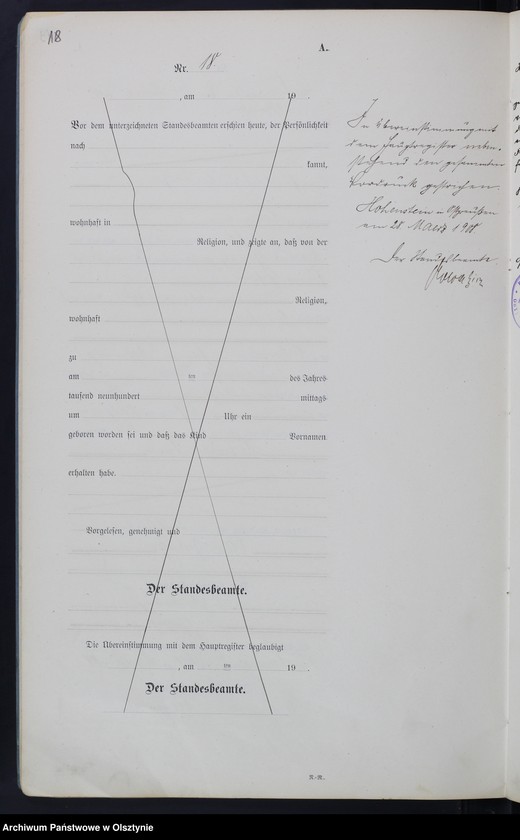 18
A.
Nr. 18
, am 19
Vor dem unterzeichneten Standesbeamten erschien heute, der Persönlichkeit
nach
kannt,
wohnhaft in
Religion, und zeigte an, daß von der
Religion,
wohnhaft
zu
am ten des Jahres
tausend neunhundert mittags
um Uhr ein
geboren worden sei und daß das Kind Vornamen
erhalten habe.
Vorgelesen, genehmigt und
Der Standesbeamte.
Die Übereinstimmung mit dem Hauptregister beglaubigt
, am ten 19
Der Standesbeamte.
In Übereinstimmung mit
dem Hauptregister neben-
stehend den gesammten
Vordruck gestrichen.
Hohenstein in Ostpreußen
am 28.
Der Standesbeamte
R.-R.
Archiwum Państwowe w Olsztynie